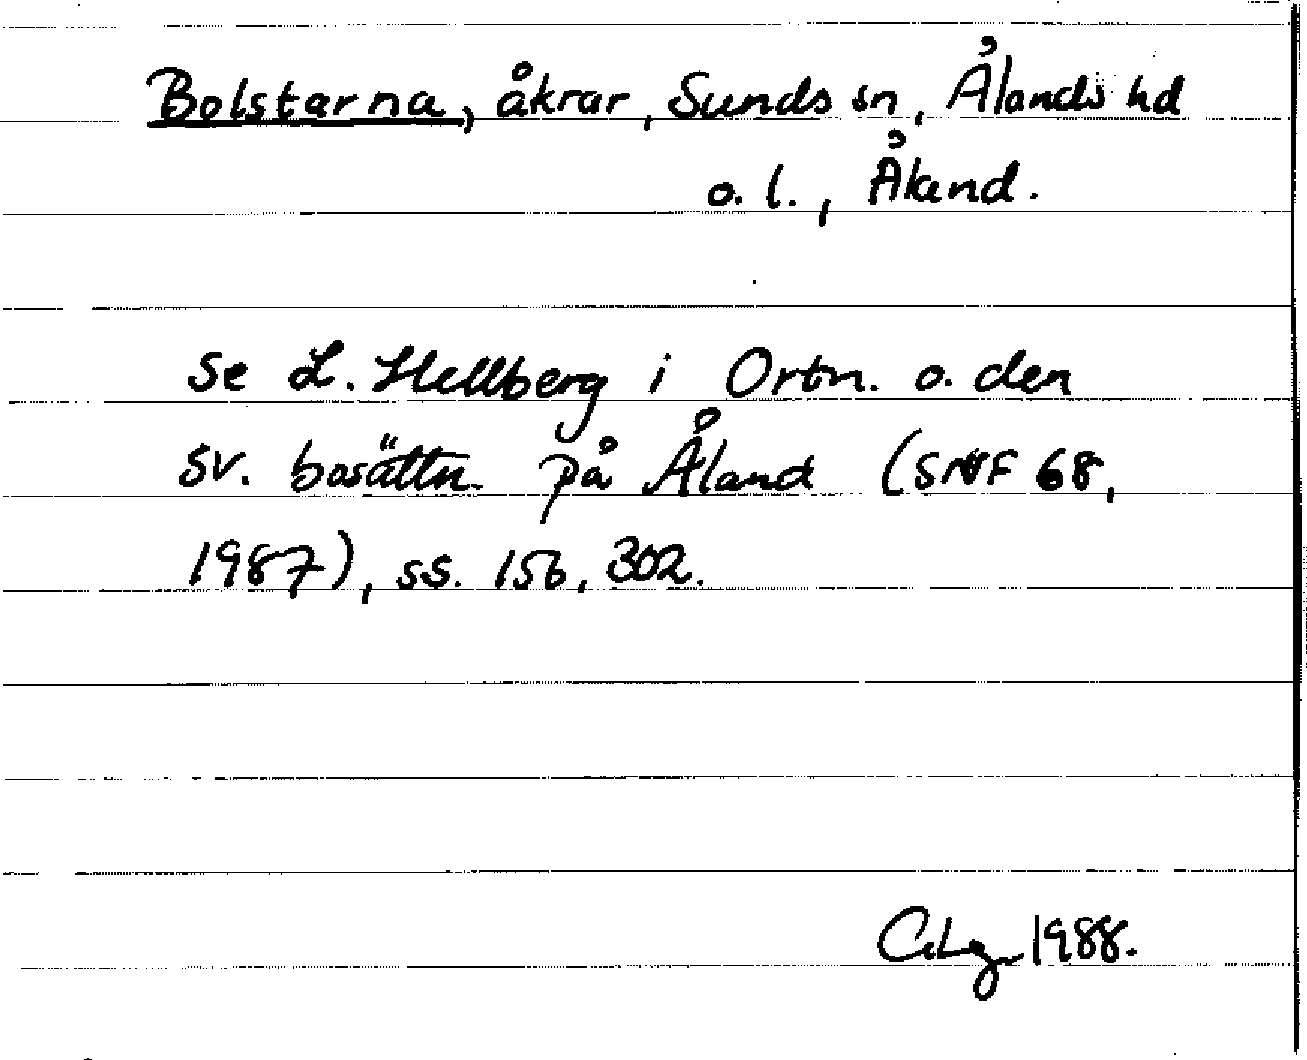 Bolstarna, åkrar, Sunds sn, Ålands hd
o. l., Åland.
Se L. Hellberg i Ortn. o. den
sv. bosättn. på Åland (SNF 68,
1987), ss. 156, 302.
1988.